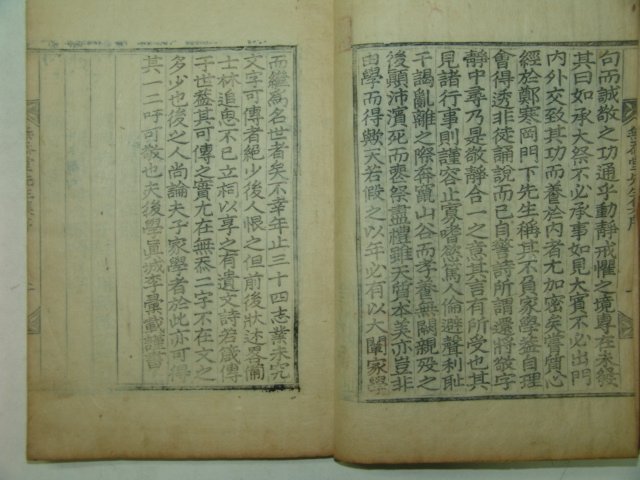 句而誠敬之功通乎動靜戒懼之境專在未發
其曰如承大祭不必承事如見大賓不必出門
內外交致其功而養於內者尤加密矣嘗質心
經於鄭寒岡門下先生稱其不負家學盖自理
會得透非徒誦說而已自警詩所謂還將敬字
靜中尋乃是敬靜合一之意其言有所受也其
見諸行事則謹容止寡嗜慾篤人倫避聲利恥
干謁亂離之際奔竄山谷而孝養無闕親歿之
後顚沛濱死而喪祭盡禮雖天質本美亦豈非
由學而得歟天若假之以年必有以大闡家學
而繼爲名世者矣不幸年止三十四志業未究
文字可傳者絶少後人恨之但前後狀述畧備
士林追思不已立相以享之有遺文詩若箴傳
子世盖其可傳之實尤在無忝二字不在文之
多少也後之人尚論夫子家學者於此亦可得
其一二吁可敬也夫後學眞城李彙載謹書